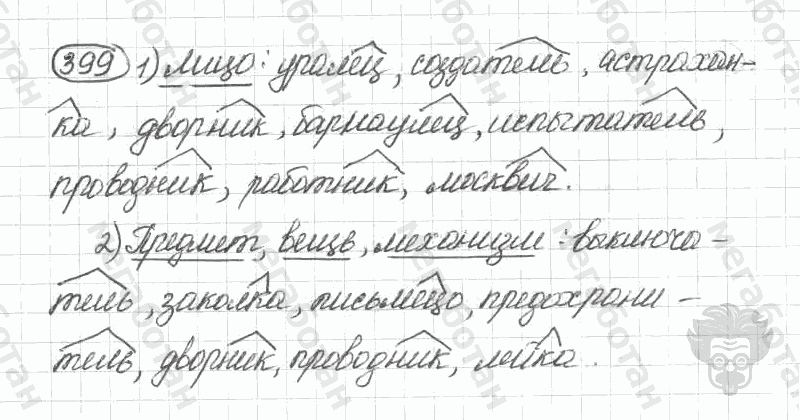 399 1) лицо: уралец, создатель, астрахан-
ка, дворник, барнаулец, испытатель,
проводник, работник, москвич.
2) Предмет, вещь, механизм: выключа-
тель, заколка, письмецо, предохрани-
тель, дворник, проводник, лейка.
мегаботан